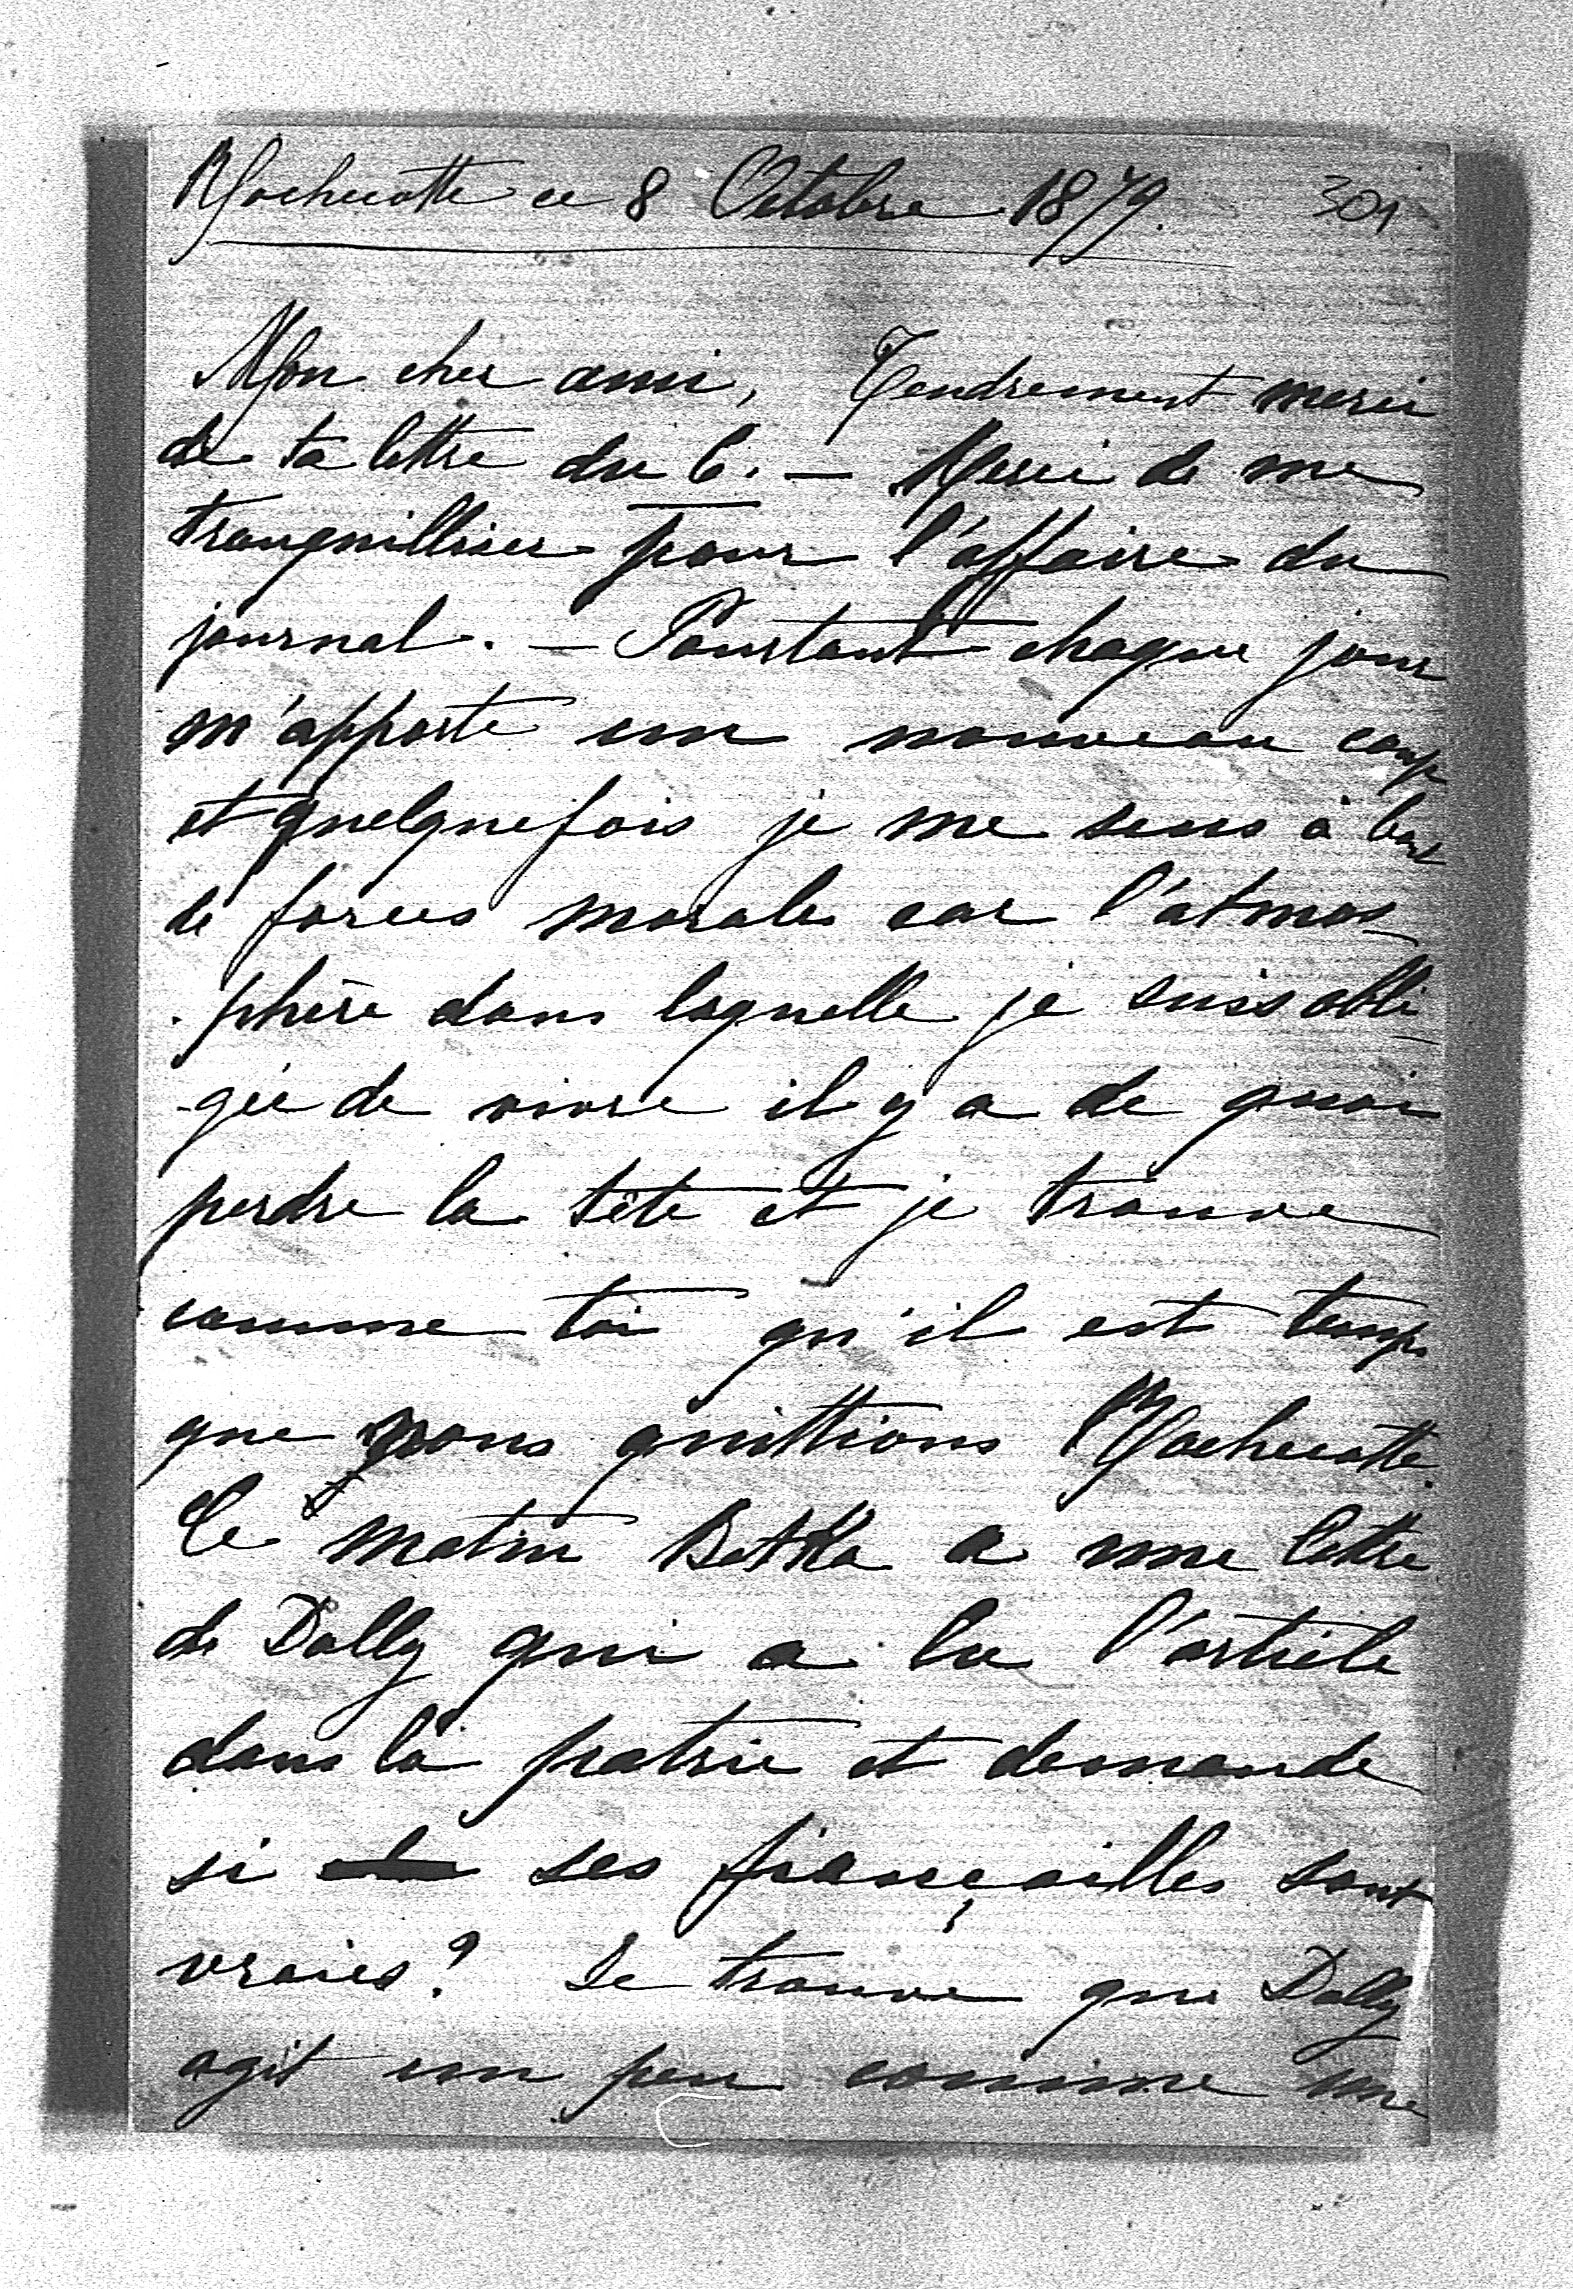 Rochecotte ce 8 Octobre 1879. 301
Mon cher ami, Tendrement merci
de ta lettre du 6. — Merci de me
tranquilliser pour l'affaire du
journal. — Pourtant chaque jour
m'apporte un nouveau coup
et quelquefois je me sens à bout
de forces morales car l'atmos-
phère dans laquelle je suis obli-
gée de vivre il y a de quoi
perdre la tête et je trouve
comme toi qu'il est temps
que nous quittions Rochecotte.
Ce matin Betka a une lettre
de Dolly qui a lu l'article
dans la patrie et demande
si ses fiançailles sont
vraies? Je trouve que Dolly
agit un peu comme une